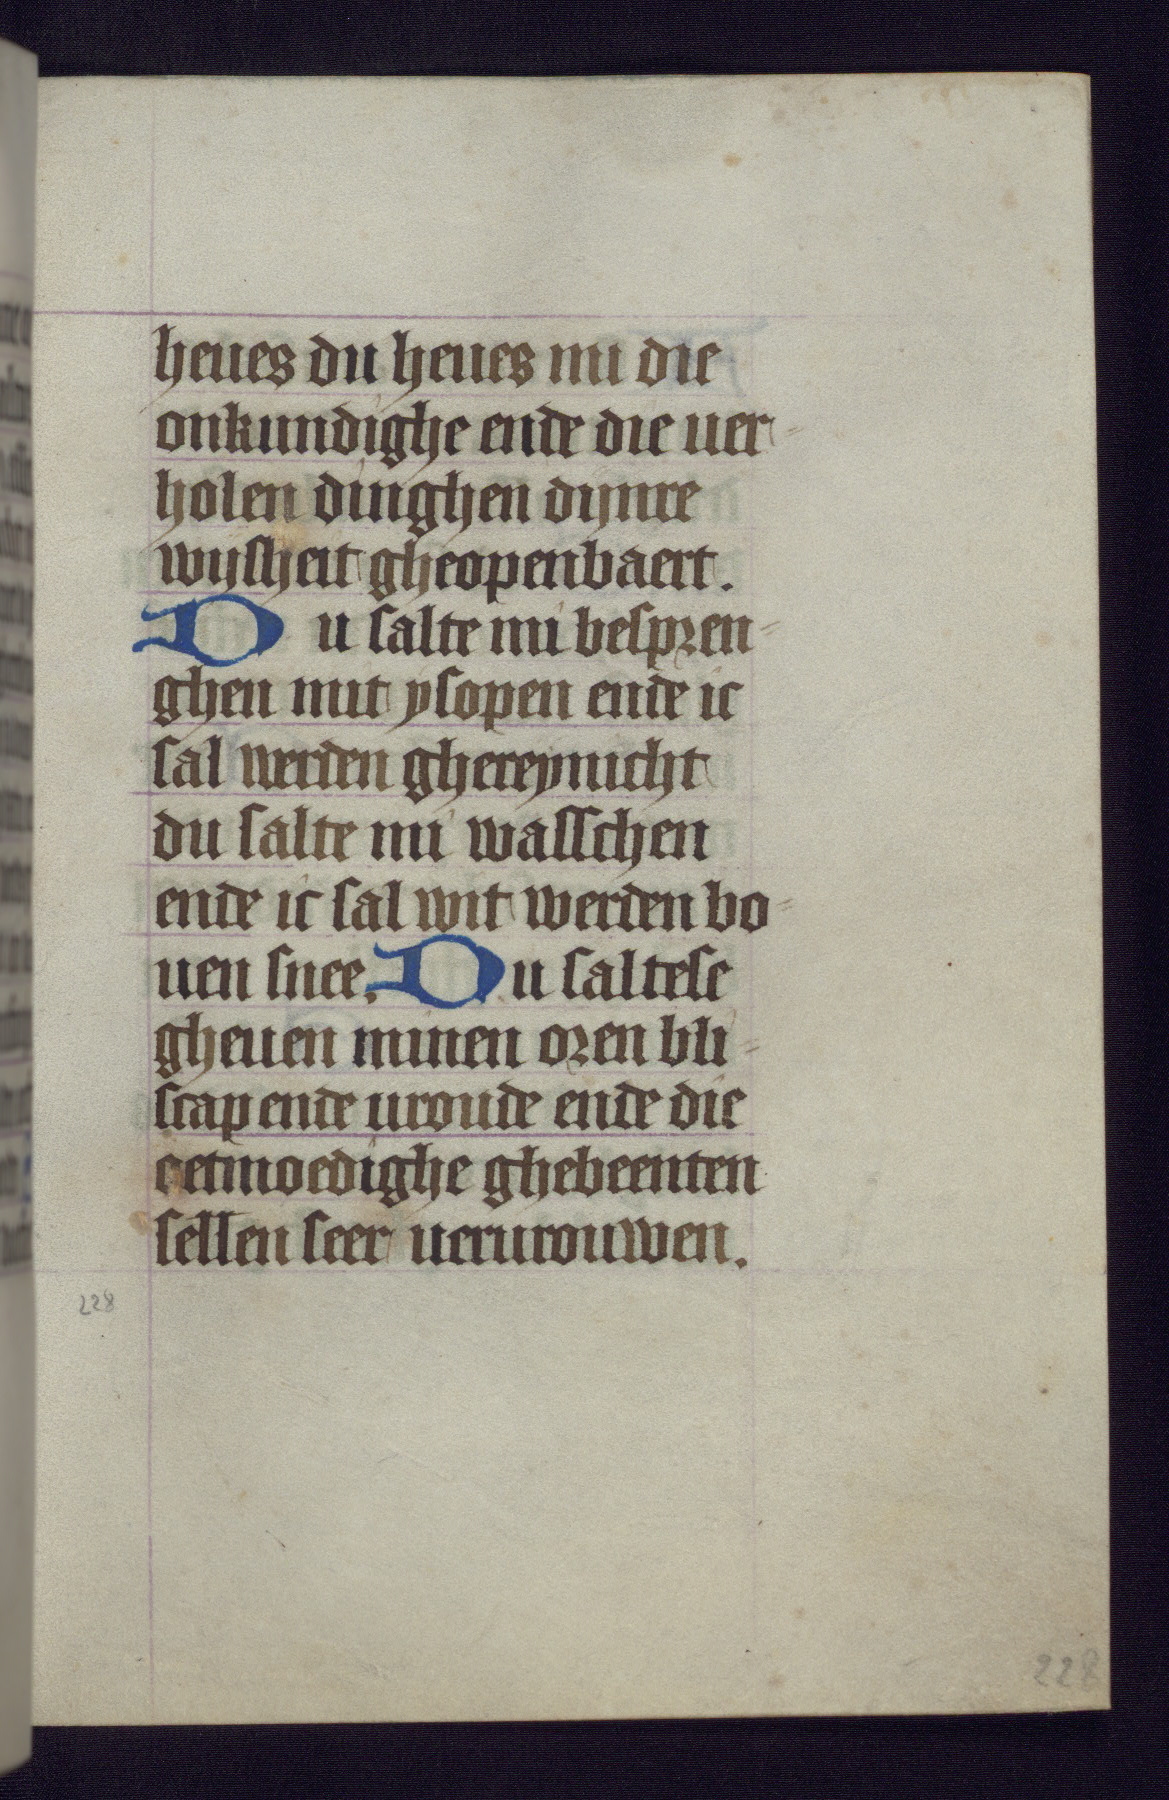 heues du heues mi die
onkundighe ende die uer-
holen dinghen dijnre
wijsheit gheopenbaert.
Du salte mi bespren-
ghen mit ysopen ende ic
sal werden ghereynicht
du salte mi wasschen
ende ic sal wit werden bo-
uen snee. Du saltese
gheuen minen oren bli-
scap ende uroude ende die
oetmoedighe ghebeenten
sellen seer uerurouwen.
228
228